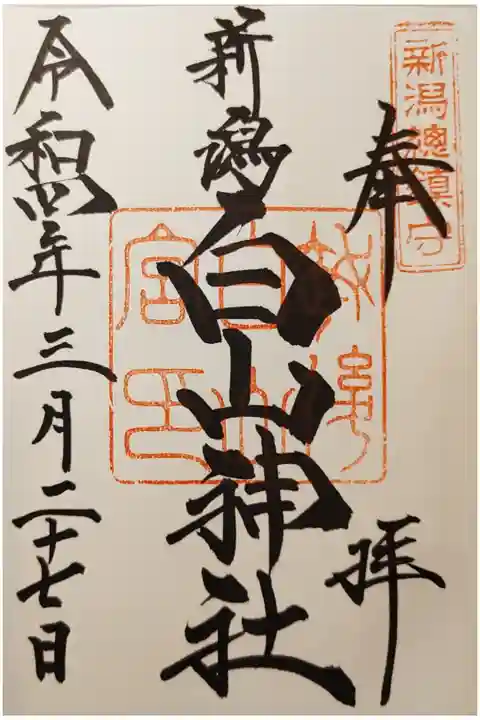 新潟總鎮守
奉拝
新潟白山神社
令和四年三月二十七日